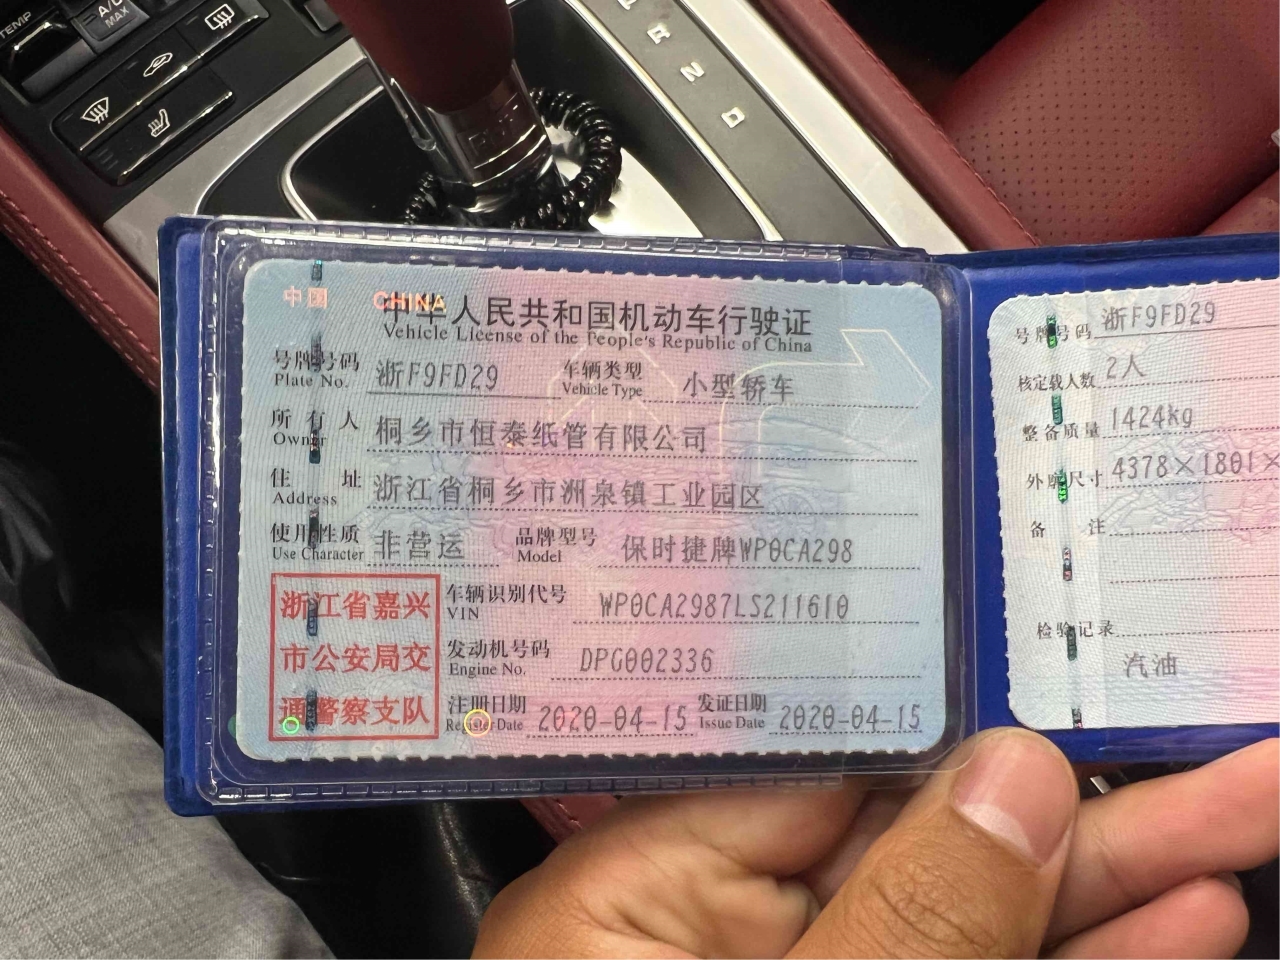 TEMP
A/C
MAX
R
N
D
中国 CHINA
中华人民共和国机动车行驶证
Vehicle License of the People's Republic of China
号牌号码 浙F9FD29 车辆类型 小型轿车
Plate No. Vehicle Type
所有人 桐乡市恒泰纸管有限公司
Owner
住址 浙江省桐乡市洲泉镇工业园区
Address
使用性质 非营运 品牌型号 保时捷牌WP0CA298
Use Character Model
浙江省嘉兴
市公安局交
通警察支队
车辆识别代号 WP0CA2987LS211610
VIN
发动机号码 DPG002336
Engine No.
注册日期 2020-04-15 发证日期 2020-04-15
Register Date Issue Date
号牌号码 浙F9FD29
核定载人数 2人
整备质量 1424kg
外廓尺寸 4378×1801×
备注
检验记录
汽油